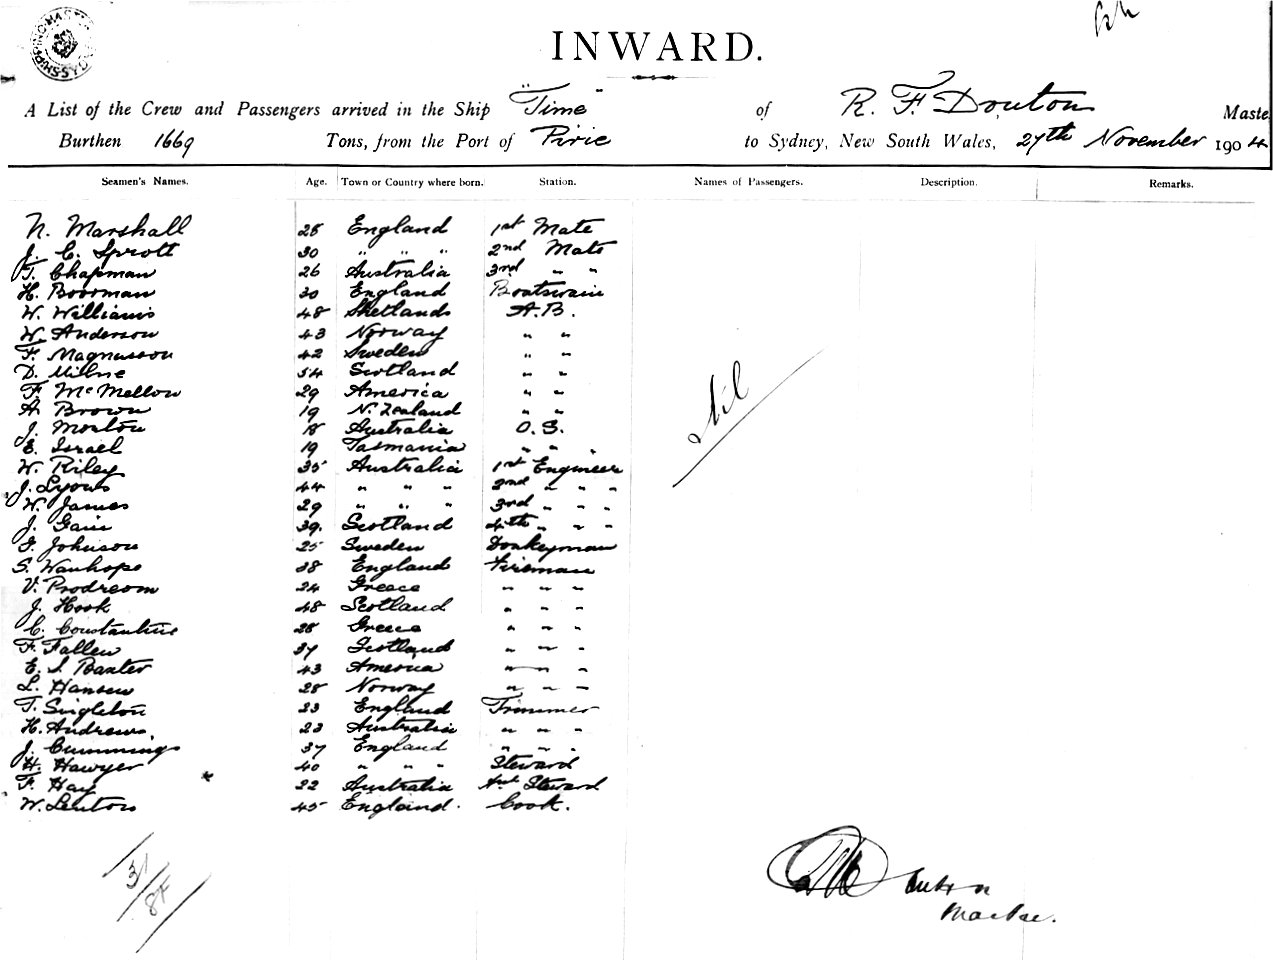 SHIPPING MASTER SYDNEY
INWARD.
A List of the Crew and Passengers arrived in the Ship "Time" of R. F. Douton Maste
Burthen 1669 Tons, from the Port of Pirie to Sydney, New South Wales, 27th November 1904
Seamen's Names. Age. Town or Country where born. Station. Names of Passengers. Description. Remarks.
N. Marshall 28 England 1st Mate
J. C. Sprott 30 " " " 2nd Mate
T. Chapman 26 Australia 3rd " "
H. Boorman 30 England Boatswain
W. Williams 48 Shetlands A.B.
W. Anderson 43 Norway " "
F. Magnusson 42 Sweden " "
D. Milne 54 Scotland " "
F. McMellow 29 America " "
A. Brown 19 N. Zealand " "
J. Morton 18 Australia O.S.
E. Israel 19 Tasmania " " "
W. Riley 35 Australia 1st Engineer
J. Lyons 44 " " " 2nd " " "
W. James 29 " " " 3rd " " "
J. Gain 39. Scotland 4th " " "
J. Johnson 25 Sweden Donkeyman
S. Wanhope 38 England Fireman
V. Prodroom 24 Greece " " "
J. Hook 48 Scotland " " "
C. Constantine 28 Greece " " "
F. Fallen 37 Scotland " " "
E. J. Baxter 43 America " " "
L. Hansen 28 Norway " " "
T. Singleton 23 England Trimmer
H. Andrews. 23 Australia " " "
J. Cummings 37 England " " "
H. Hawyer 40 " " " Steward
F. Hay 22 Australia Asst Steward
W. Lenton 45 England. Cook.
Nil
31/8F
Douton
Master.